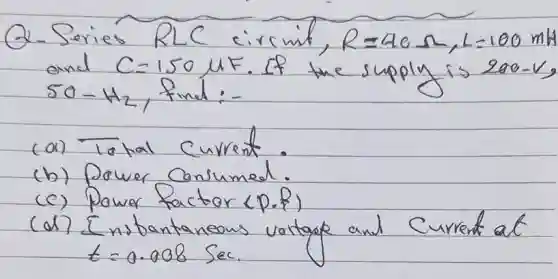 Q- Series RLC circuit, R=40 Ω, L=100 mH
and C=150 μF. If the supply is 200-V,
50-Hz, find:-
(a) Total Current.
(b) Power Consumed.
(c) Power factor (p.f)
(d) Instantaneous voltage and Current at
t=0.008 Sec.